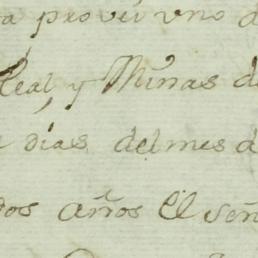 a proveí uno d
Real, y Minas de
días del mes d
dos años El señ